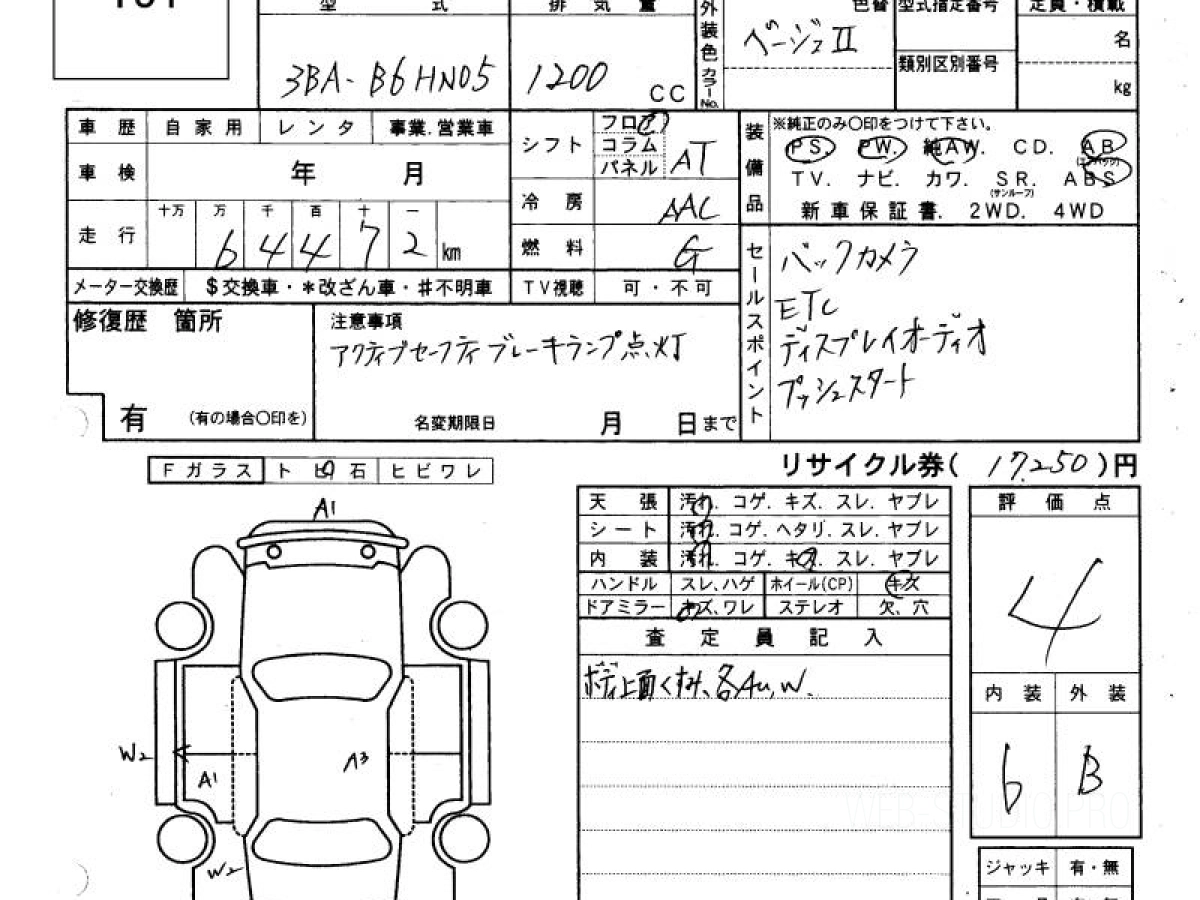 型 式 排 気 量 外装色 色替 型式指定番号 定員・積載
3BA-B6HN05 1200 CC カラーNo. ベージュII 類別区別番号 名
kg
車 歴 自家用 レンタ 事業.営業車
車 検 年 月
走 行 十万 万 千 百 十 一
6 4 4 7 2 km
メーター交換歴 $交換車・*改ざん車・#不明車
シフト フロア コラム パネル AT
冷 房 AAC
燃 料 G
TV視聴 可・不可
装備品 ※純正のみ〇印をつけて下さい。
PS. PW. 純AW. CD. AB(エアバック)
TV. ナビ. カワ. SR.(サンルーフ) ABS
新車保証書. 2WD. 4WD
修復歴 箇所
有 (有の場合〇印を)
注意事項
アクティブセーフティブレーキランプ点灯
名変期限日 月 日まで
セールスポイント
バックカメラ
ETC
ディスプレイオーディオ
プッシュスタート
リサイクル券( 17,250 )円
Fガラス トビ石 ヒビワレ
天 張 汚れ. コゲ. キズ. スレ. ヤブレ
シート 汚れ. コゲ. ヘタリ. スレ. ヤブレ
内 装 汚れ. コゲ. キズ. スレ. ヤブレ
ハンドル スレ、ハゲ ホイール(CP) キズ
ドアミラー キズ、ワレ ステレオ 欠、穴
査定員記入
ボディ上面くすみ、各AU,W.
評価点
4
内装 外装
6 B
ジャッキ 有・無
A1
W2
A1
A3
W2
WEB-STUDIO.PRO